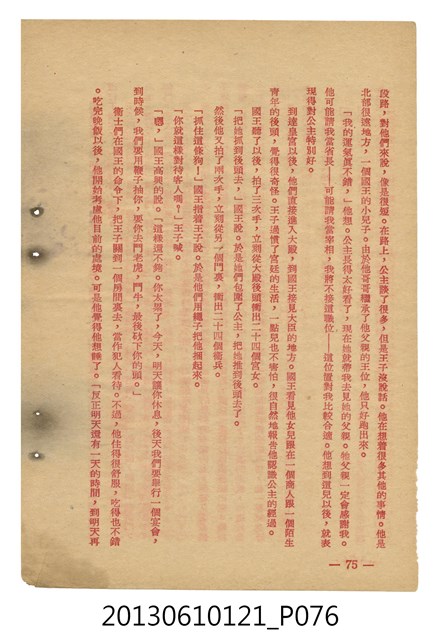 段路，對他們來說，像是很短。在路上，公主談了很多，但是王子沒說話。他在想着很多其他的事情。他是
北部很遠地方，一個國王的小兒子。由於他哥哥繼承了他父親的王位，他只好跑出來。
「我的運氣眞不錯，」他想。公主長得太好看了，現在她就帶我去見她的父親。牠父親一定會感謝我。
他可能請我當省長——可能請我當宰相，我將不接這職位——這位置對我比較合適。他想到這兒以後，就表
現得對公主特別好。
到達皇宮以後，他們直接進入大殿，到國王接見大臣的地方。國王看見他女兒跟在一個商人跟一個陌生
青年的後頭，覺得很奇怪。王子過慣了宮廷的生活，一點兒也不害怕，很自然地報告他認識公主的經過。
國王聽了以後，拍了三次手，立刻從大殿後頭衝出二十四個宮女。
「把她抓到後頭去，」國王說。於是她們包圍了公主，把她推到後頭去了。
然後他又拍了兩次手，立刻從另一個門裏，衝出二十四個衞兵。
「抓住這條狗！」國王指着王子說。於是他們用繩子把他捆起來。
「你就這樣對待客人嗎？」王子喊。
「嗯，」國王高興的說。「這樣還不夠。你太累了，今天，明天讓你休息，後天我們要舉行一個宴會，
到時候，我們要用鞭子抽你，要你去鬥老虎，鬥牛，最後砍下你的頭。」
衞士們在國王的命令下，把王子關到一個房間裏去，當作犯人看待。不過，他住得很舒服，吃得也不錯
。吃完晚飯以後，他開始考慮他目前的處境。可是他覺得他想睡了。「反正明天還有一天的時間，到明天再
— 75 —
20130610121_P076